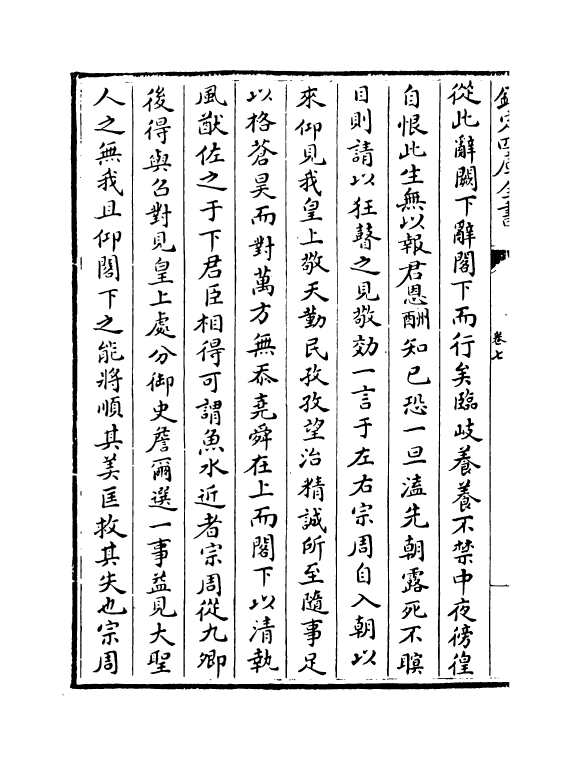 欽定四庫全書
卷七
從此辭闕下辭閣下而行矣臨岐養養不禁中夜徬徨
自恨此生無以報君恩酬知已恐一旦溘先朝露死不瞑
目則請以狂瞽之見敬効一言于左右宗周自入朝以
來仰見我皇上敬天勤民孜孜望治精誠所至隨事足
以格蒼昊而對萬方無忝堯舜在上而閣下以清執
風猷佐之于下君臣相得可謂魚水近者宗周從九卿
後得與召對見皇上處分御史詹爾選一事益見大聖
人之無我且仰閣下之能將順其美匡救其失也宗周